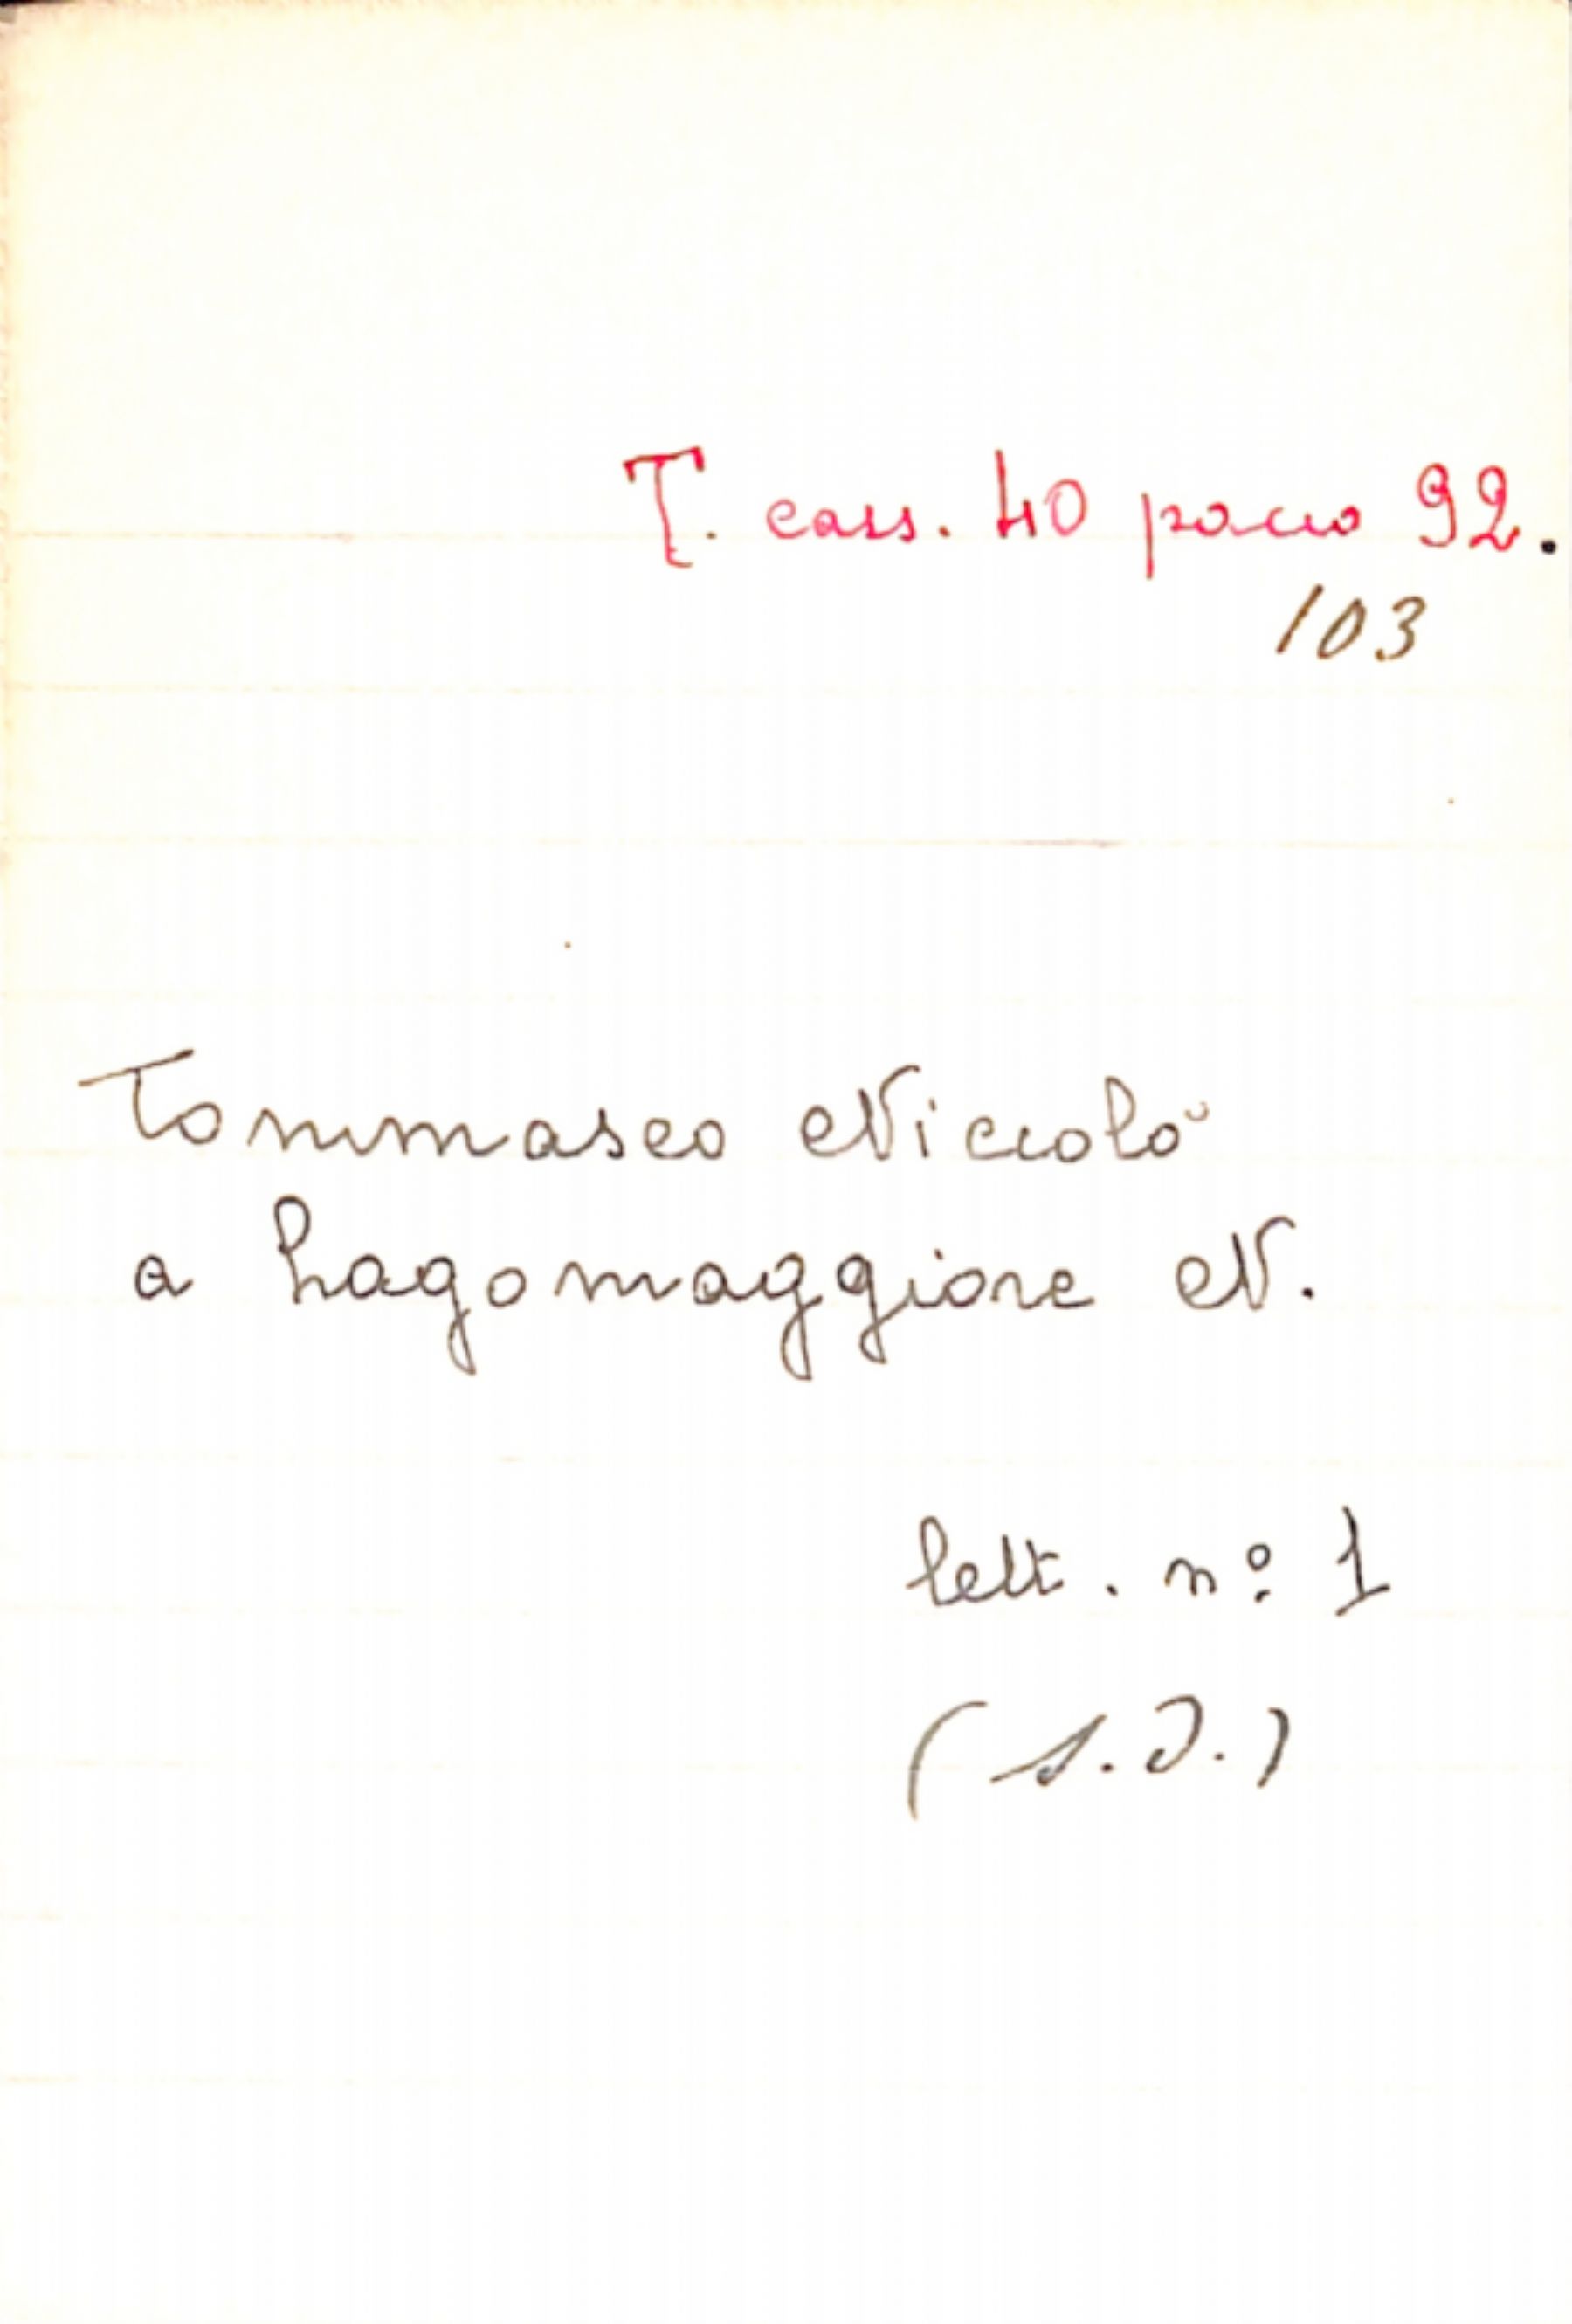 T. cass. 40 pacco 92.
103
Tommaseo Niccolò
a Lagomaggiore N.
lett. nº 1
(s.d.)